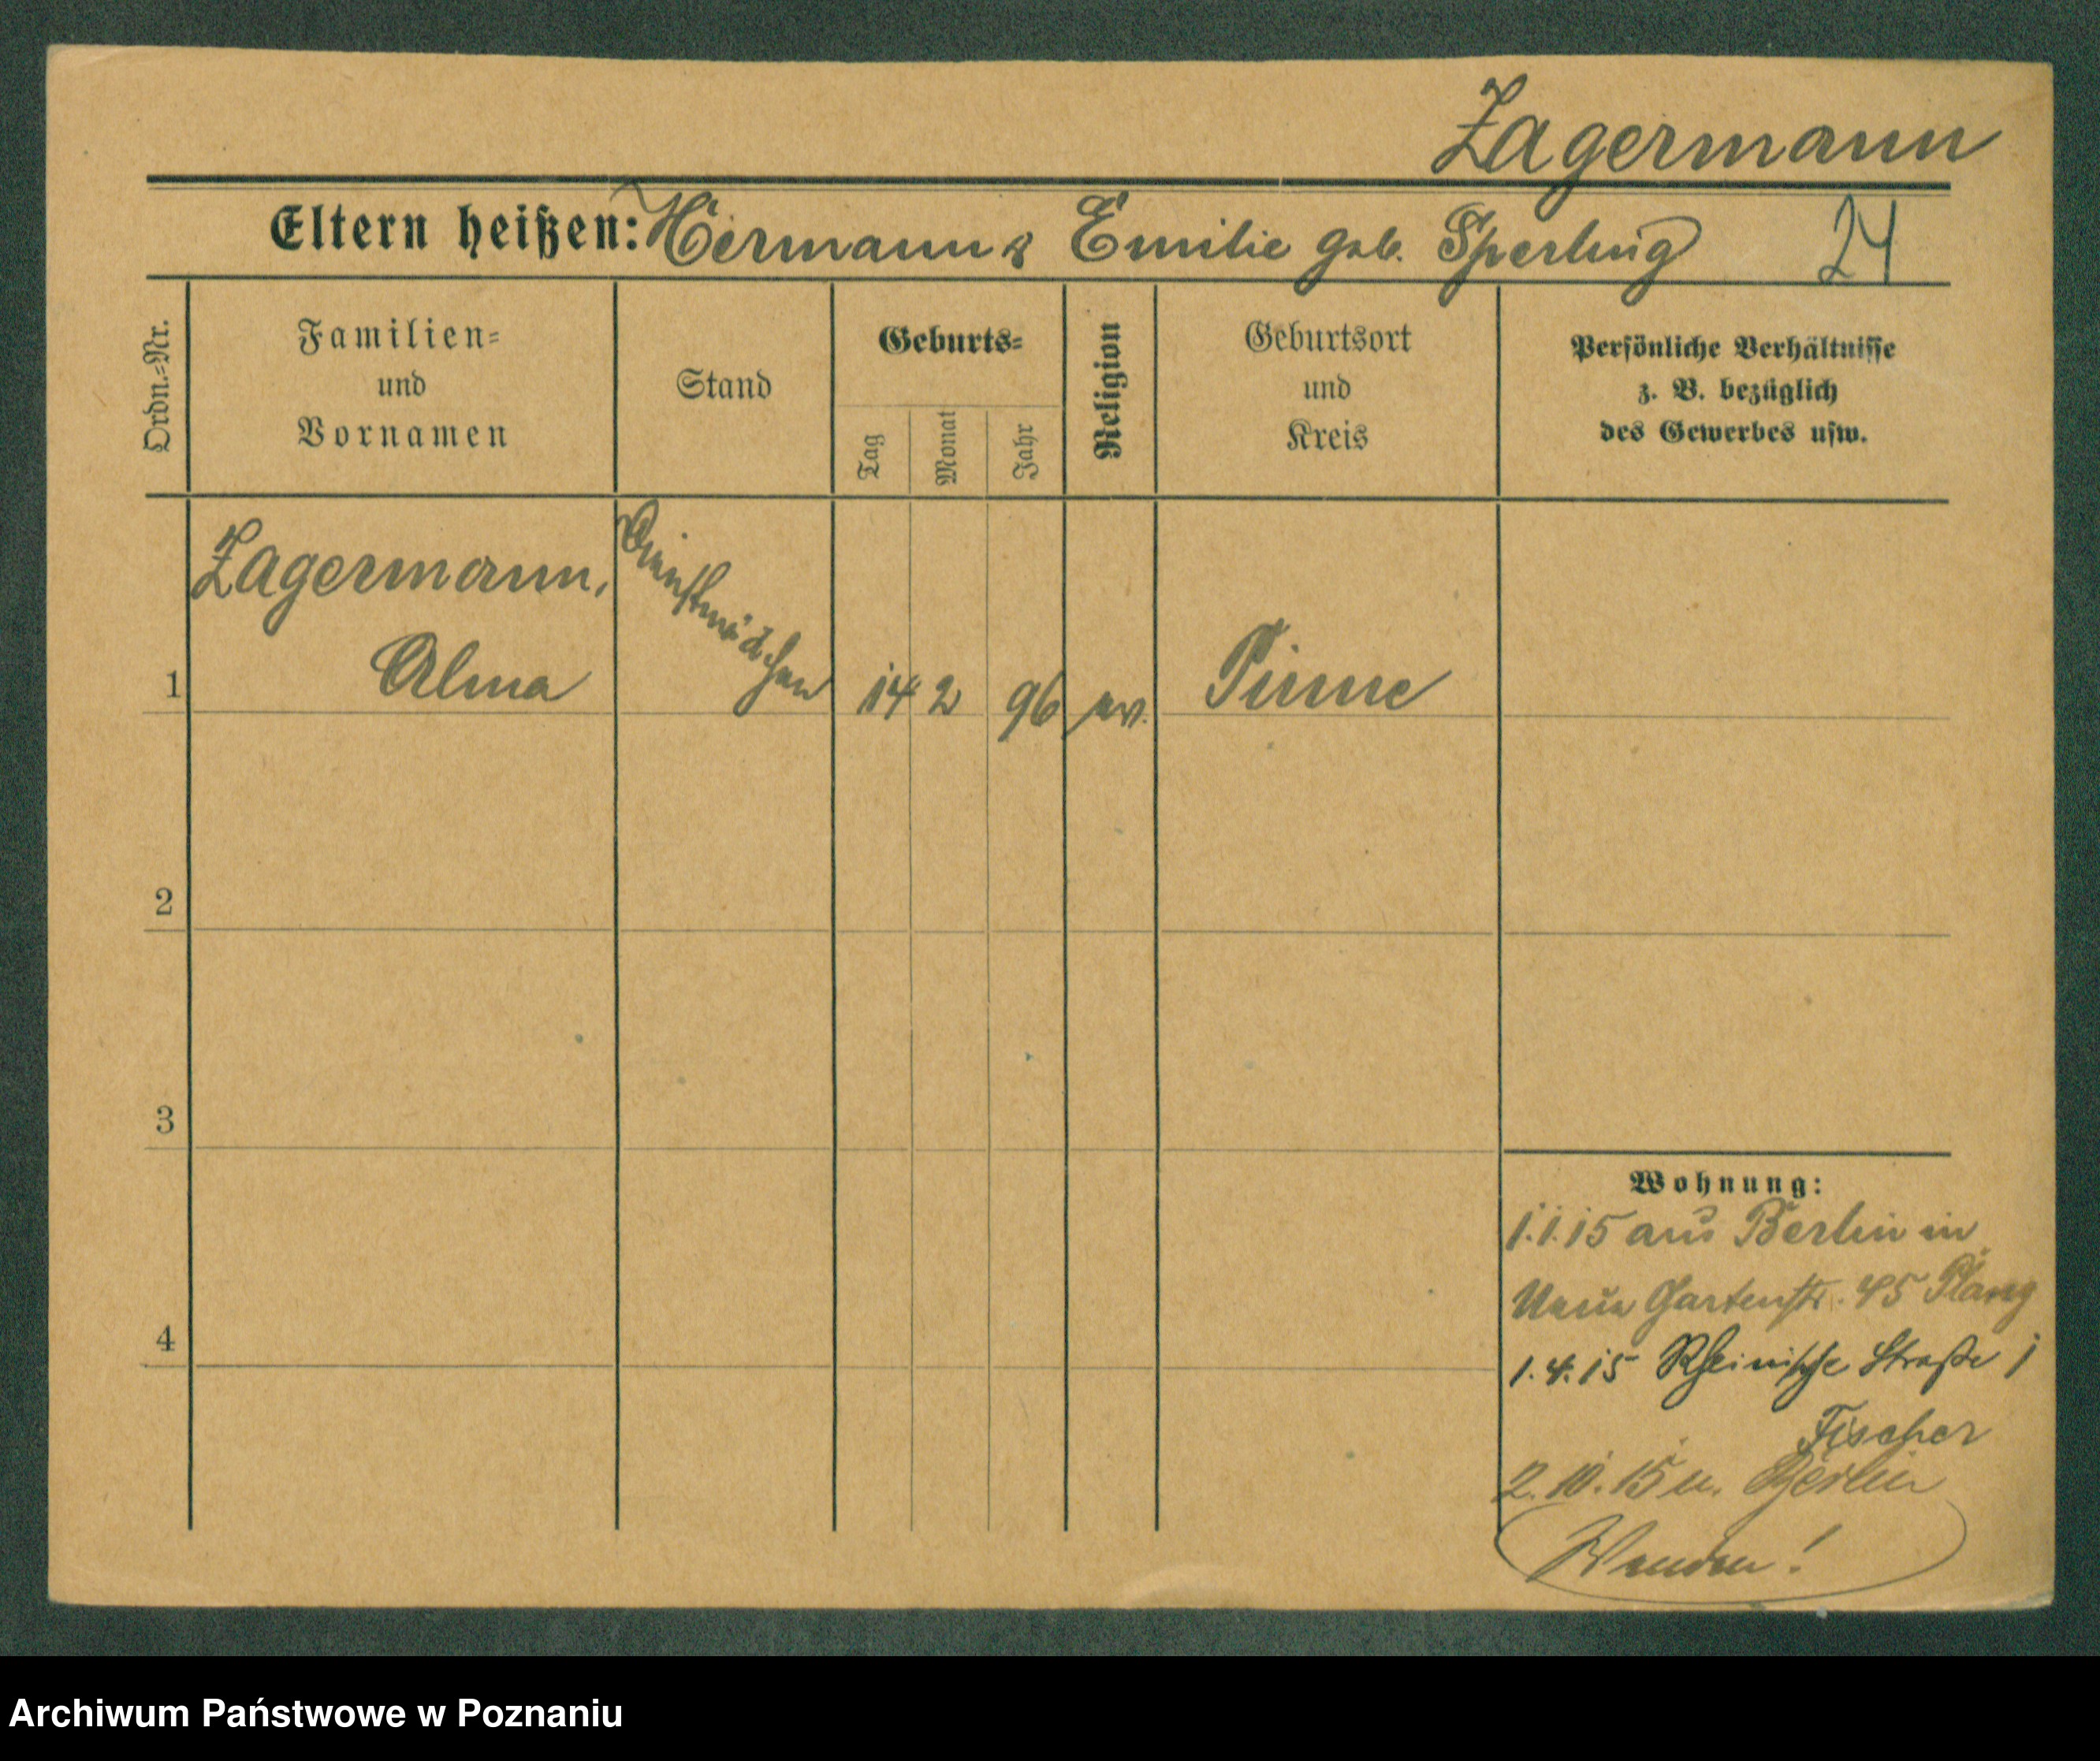 Zagermann
Eltern heißen: Hermann & Emilie geb. Sperling 24
Ordn.=Nr.
Familien=
und
Vornamen
Stand
Geburts=
Tag
Monat
Jahr
Religion
Geburtsort
und
Kreis
Persönliche Verhältnisse
z. B. bezüglich
des Gewerbes usw.
Zagermann,
Dienstmädchen
1 Alma 14 2 96 ev. Pinne
2
3
4
Wohnung:
1.1.15 aus Berlin in
Neue Gartenstr. 45
1.4.15 Rheinische Straße 1
Fischer
2.10.15 n. Berlin
Wenden!
Archiwum Państwowe w Poznaniu